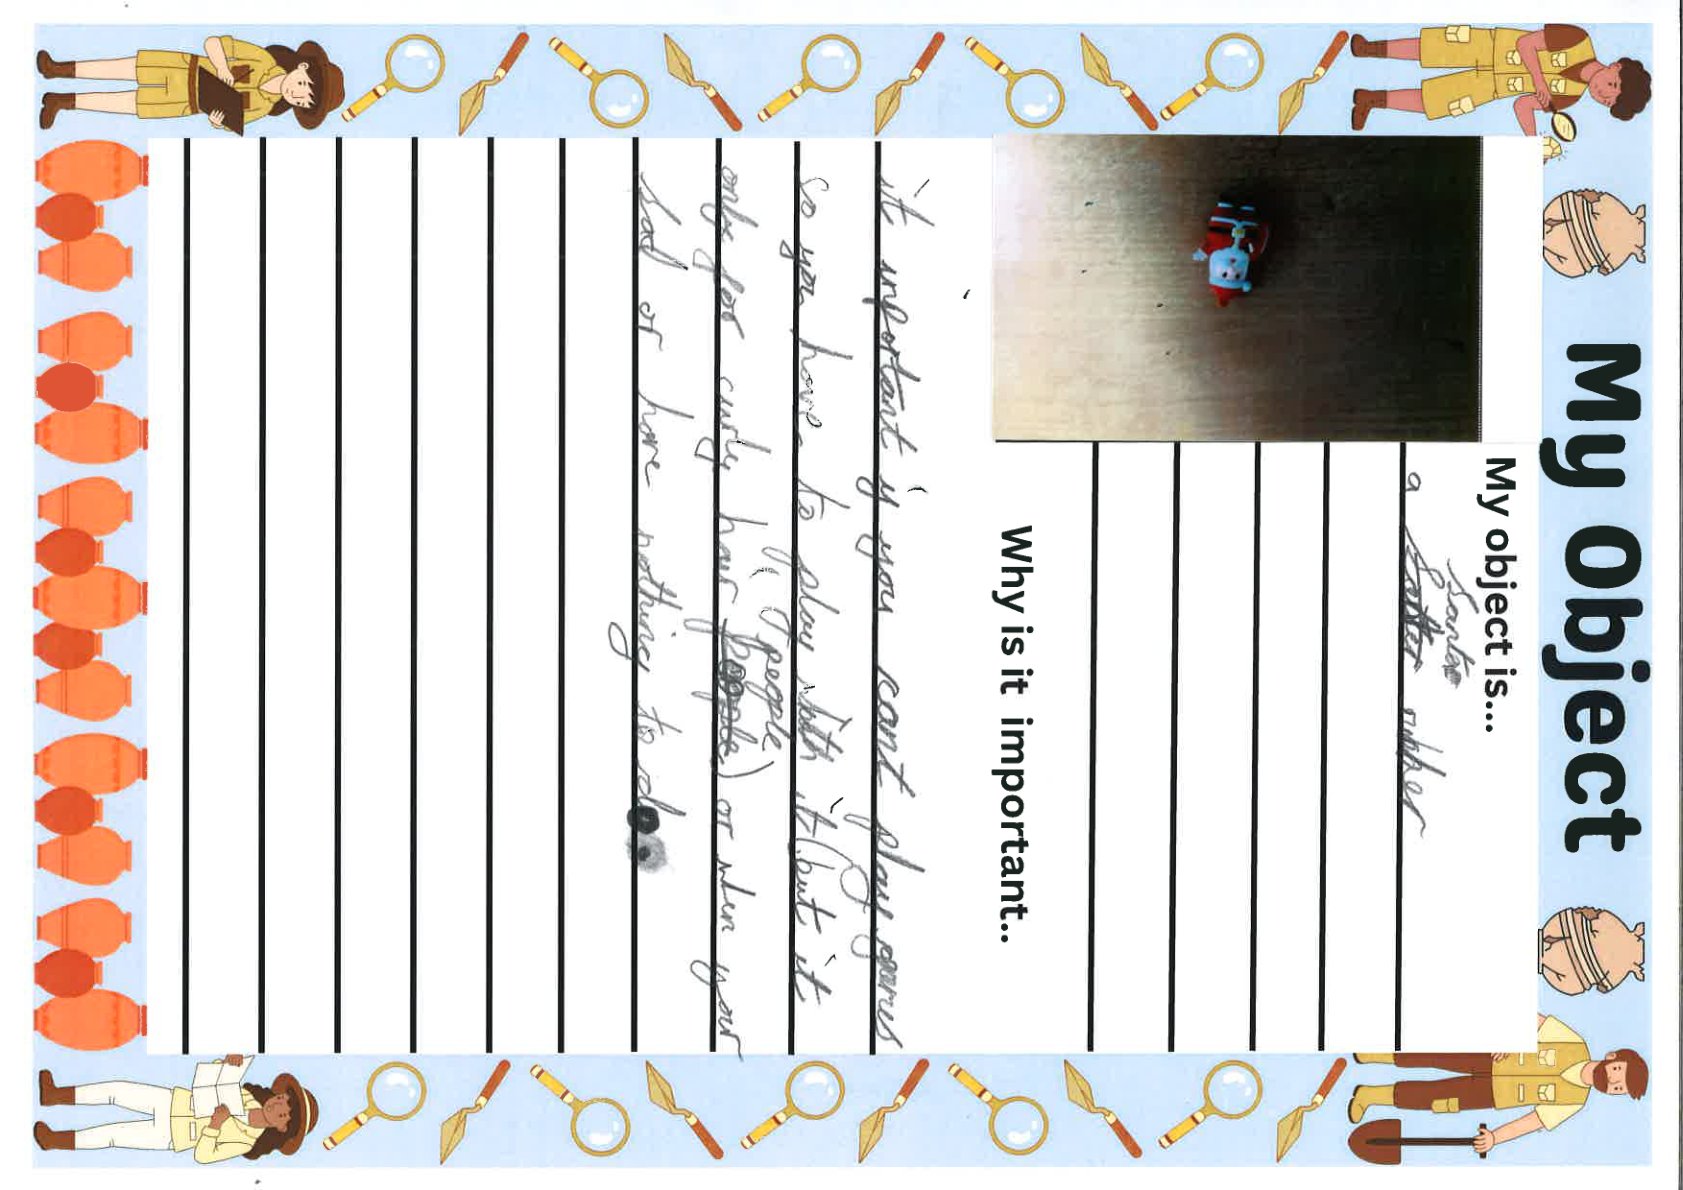 My Object
My object is...
Santa
a rubber
Why is it important..
it important if you cant play games
so you have to play with it (but it
people
only for curly hair people) or when your
sad or have nothing to do